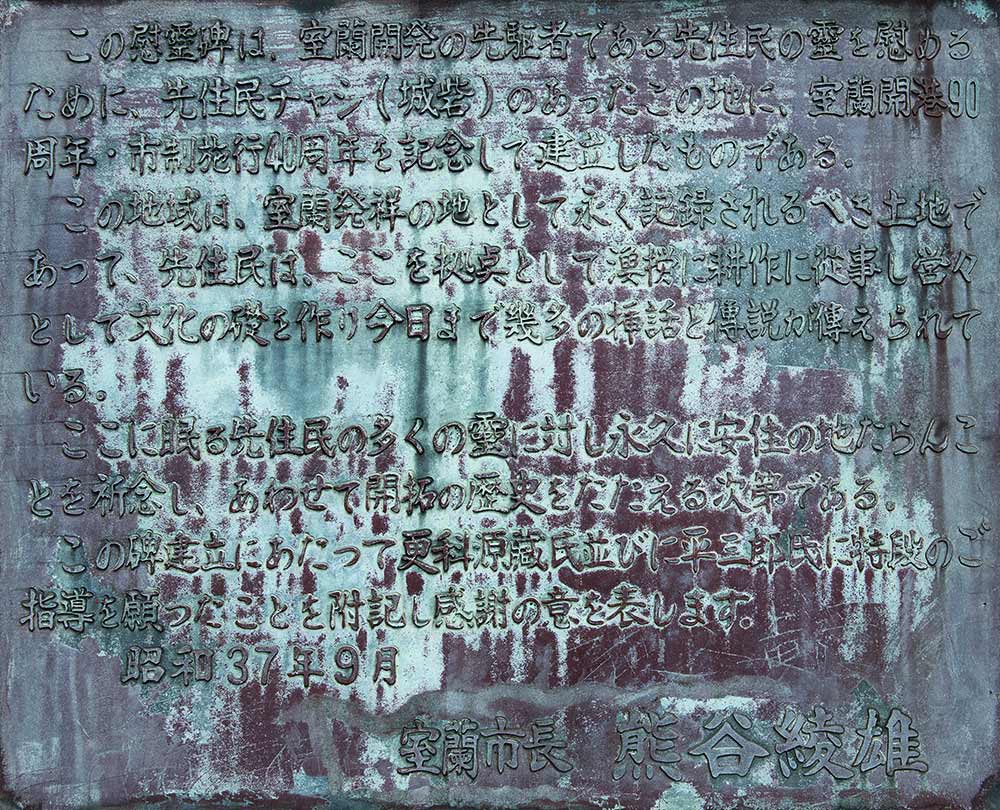 この慰霊碑は、室蘭開発の先駆者である先住民の霊を慰める
ために、先住民チャシ(城砦)のあったこの地に、室蘭開港90
周年・市制施行40周年を記念して建立したものである。
この地域は、室蘭発祥の地として永く記録されるべき土地で
あって、先住民は、ここを拠点として漁撈に耕作に従事し営々
として文化の礎を作り今日まで幾多の挿話と傳説が傳えられて
いる。
ここに眠る先住民の多くの霊に対し永久に安住の地たらんこ
とを祈念し、あわせて開拓の歴史をたたえる次第である。
この碑建立にあたって更科源蔵氏並びに平三郎氏に特段のご
指導を願ったことを附記し感謝の意を表します。
昭和37年9月
室蘭市長 熊谷綾雄